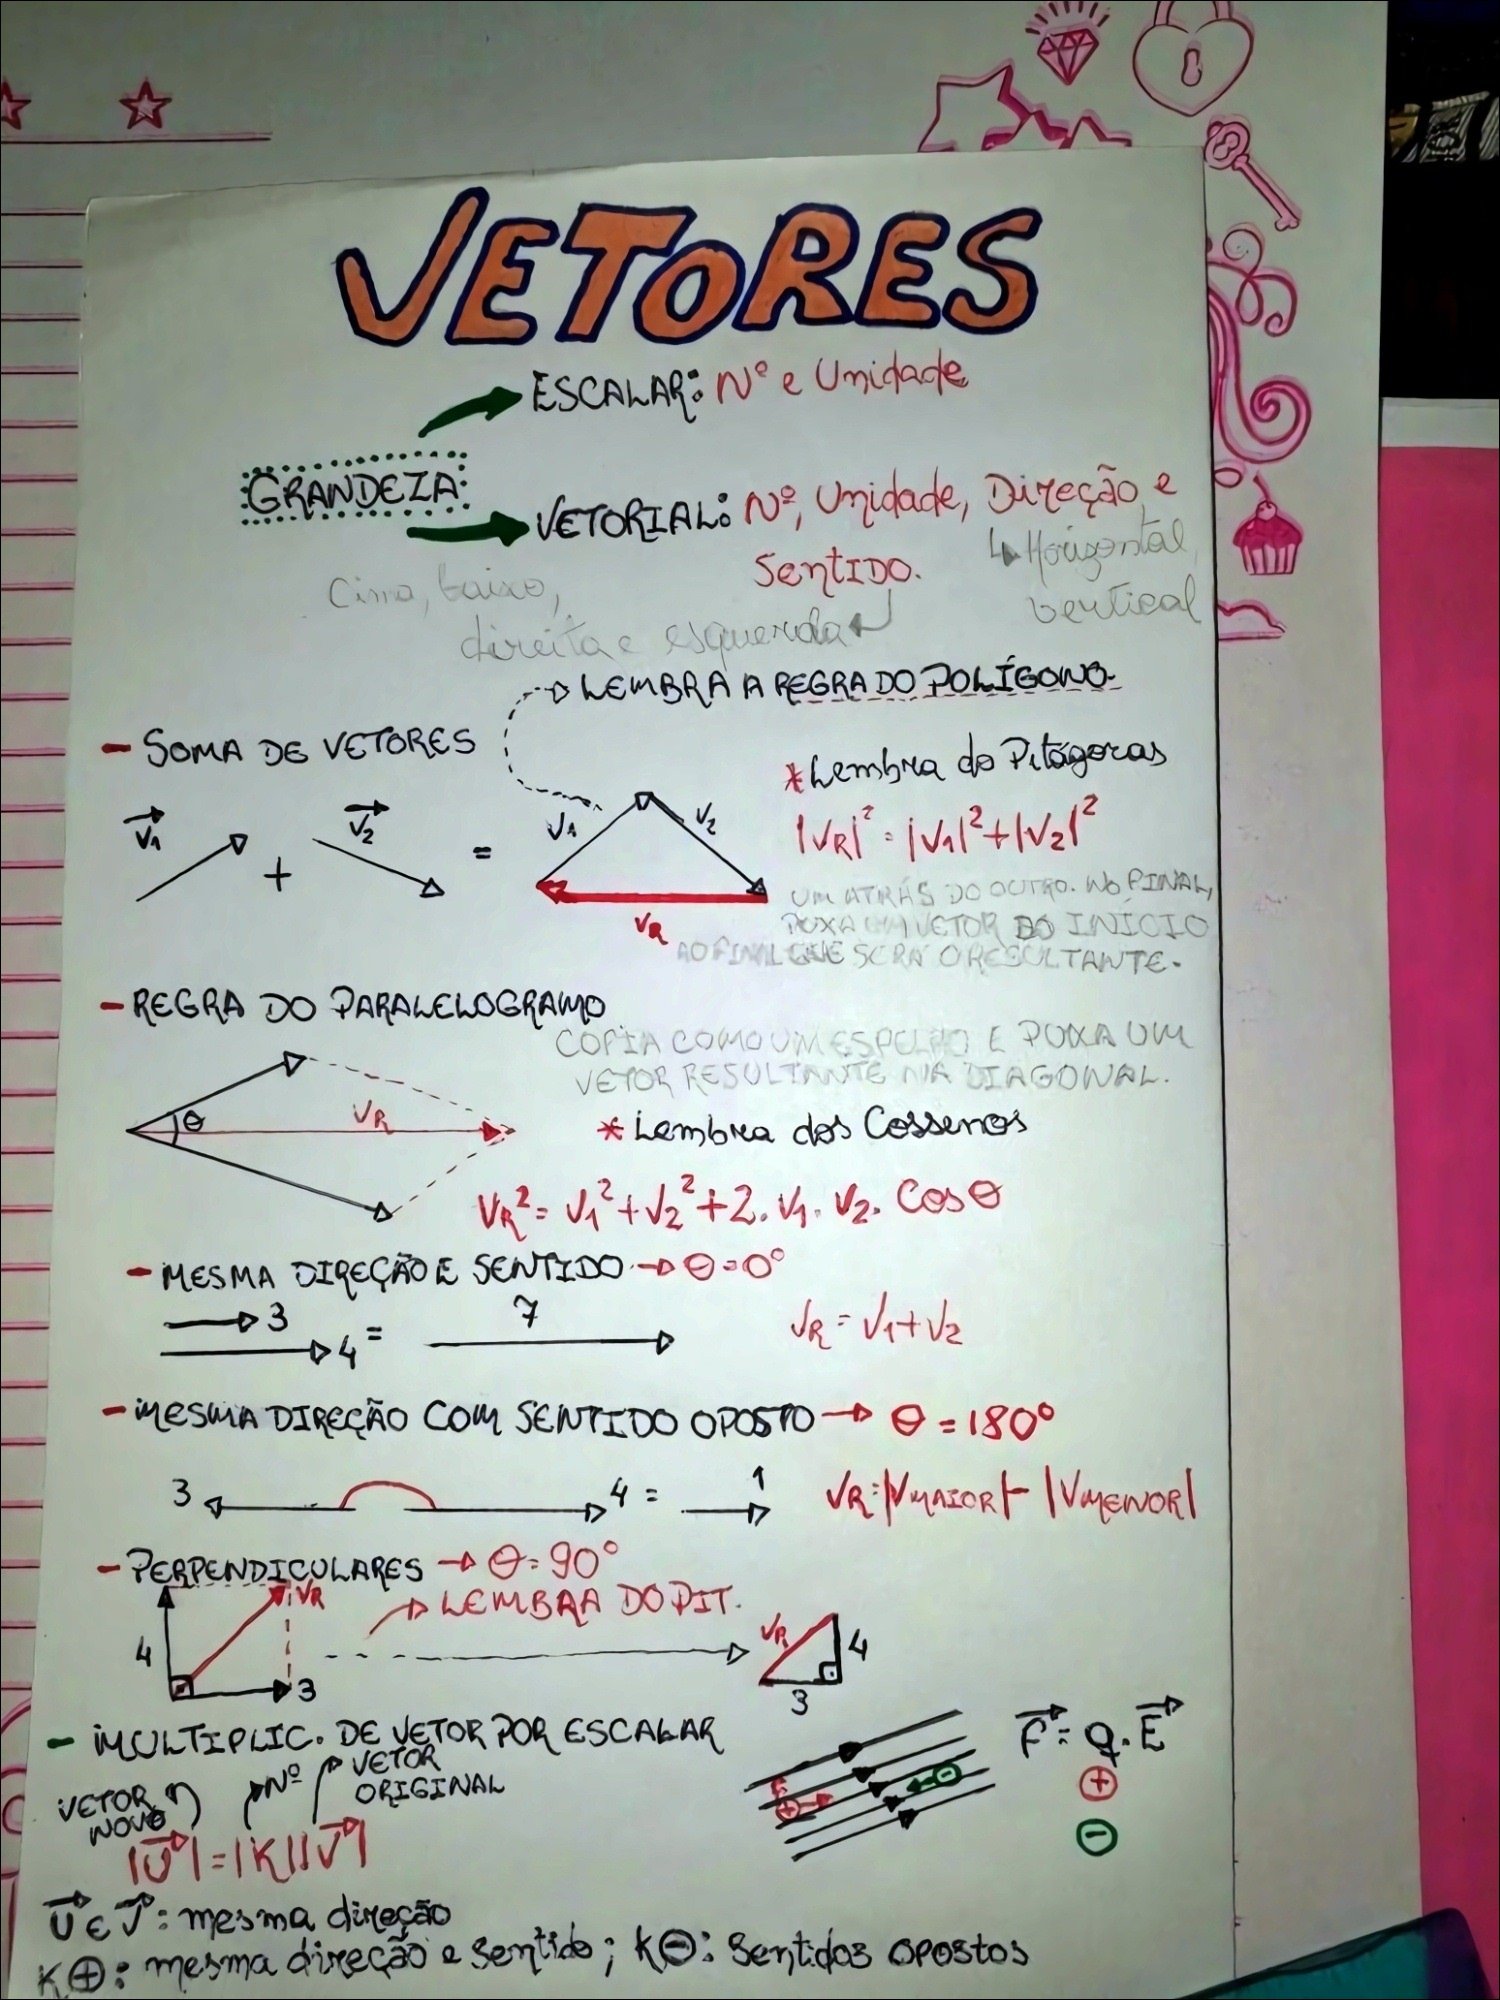 VETORES
ESCALAR: Nº e Unidade
GRANDEZA
VETORIAL: Nº, Unidade, Direção e
Sentido.
↳ Horizontal,
vertical
Cima, baixo,
direita e esquerda
LEMBRA A REGRA DO POLÍGONO
- SOMA DE VETORES
* Lembra do Pitágoras
V1 + V2 = V1 V2
VR
|VR|² = |V1|² + |V2|²
UM ATRÁS DO OUTRO. NO FINAL,
PUXA UM VETOR DO INÍCIO
AO FINAL QUE SERÁ O RESULTANTE.
- REGRA DO PARALELOGRAMO
COPIA COMO UM ESPELHO E PUXA UM
VETOR RESULTANTE NA DIAGONAL.
θ VR
* Lembra dos Cossenos
VR² = V1² + V2² + 2. V1. V2. Cos θ
- MESMA DIREÇÃO E SENTIDO → θ = 0°
3
4 = 7
VR = V1 + V2
- MESMA DIREÇÃO COM SENTIDO OPOSTO → θ = 180°
3 4 = 1
VR = |VMAIOR| - |VMENOR|
- PERPENDICULARES → θ = 90°
VR
LEMBRA DO PIT.
4
3
VR 4
3
- MULTIPLIC. DE VETOR POR ESCALAR
VETOR NOVO
Nº
VETOR ORIGINAL
|U⃗| = |K||V⃗|
F⃗ = q. E⃗
F + -
+
-
U⃗ e V⃗: mesma direção
K⊕: mesma direção e sentido; K⊖: Sentidos opostos